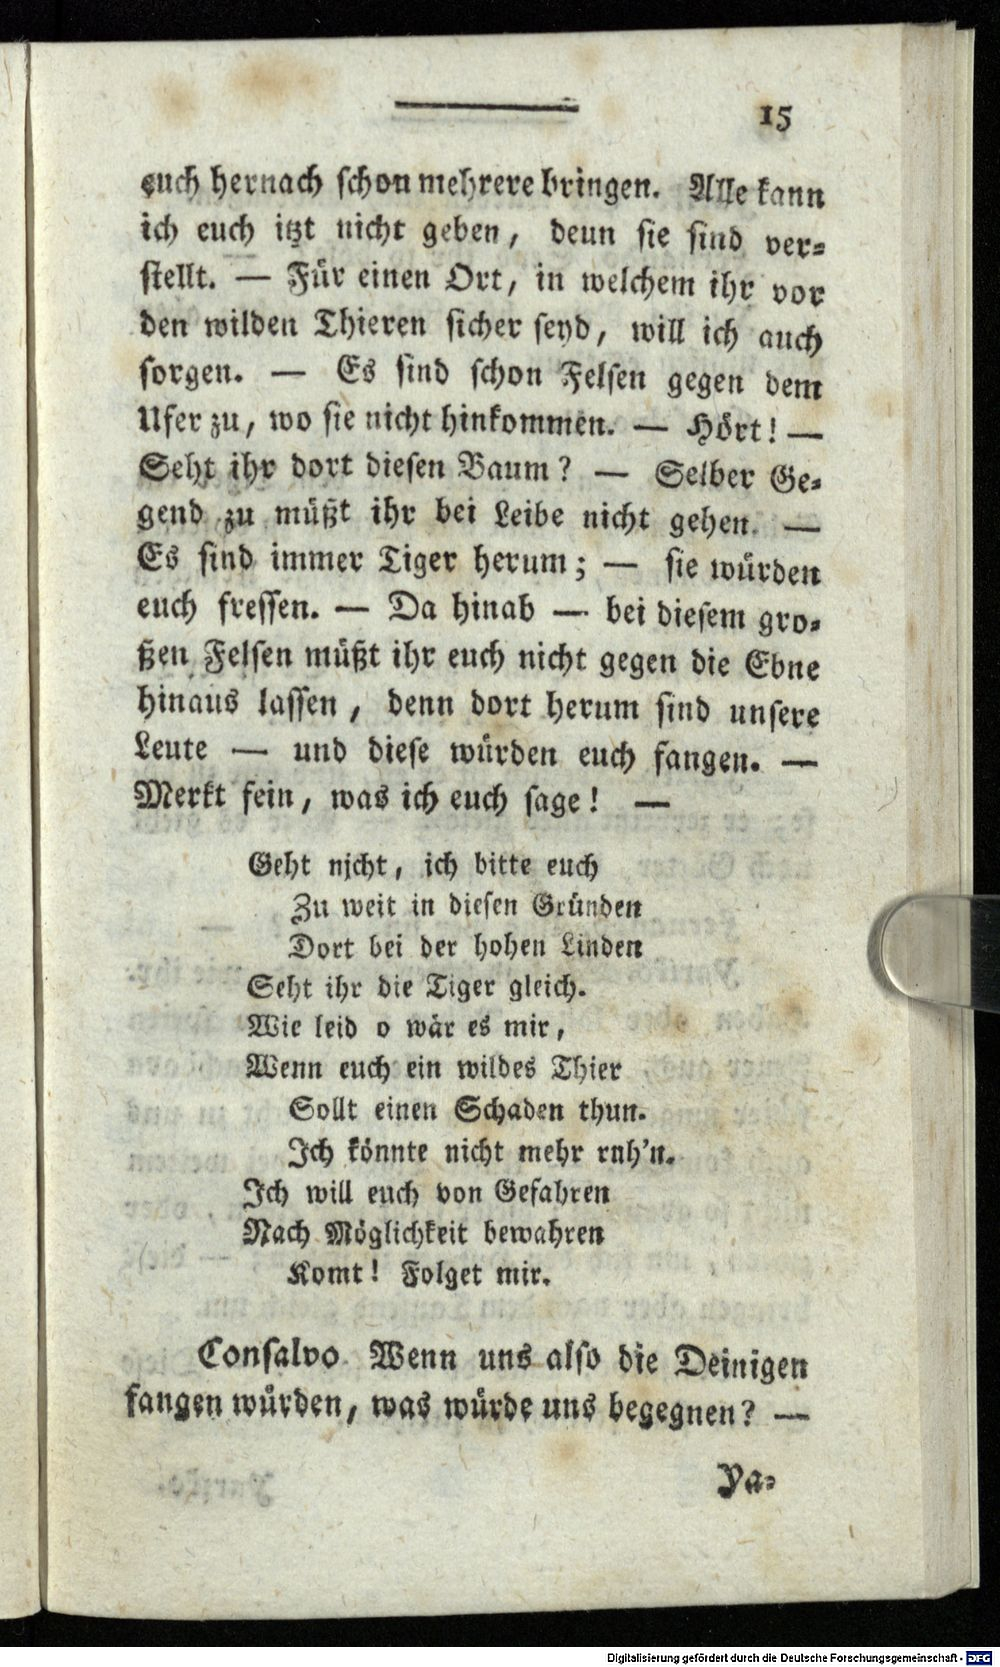 15
euch hernach schon mehrere bringen. Alle kann
ich euch itzt nicht geben, denn sie sind ver-
stellt. — Für einen Ort, in welchem ihr vor
den wilden Thieren sicher seyd, will ich auch
sorgen. — Es sind schon Felsen gegen dem
Ufer zu, wo sie nicht hinkommen. — Hört! —
Seht ihr dort diesen Baum? — Selber Ge-
gend zu müßt ihr bei Leibe nicht gehen. —
Es sind immer Tiger herum; — sie würden
euch fressen. — Da hinab — bei diesem gro-
ßen Felsen müßt ihr euch nicht gegen die Ebne
hinaus lassen, denn dort herum sind unsere
Leute — und diese würden euch fangen. —
Merkt fein, was ich euch sage! —
Geht nicht, ich bitte euch
Zu weit in diesen Gründen
Dort bei der hohen Linden
Seht ihr die Tiger gleich.
Wie leid o wär es mir,
Wenn euch ein wildes Thier
Sollt einen Schaden thun.
Ich könnte nicht mehr ruh'n.
Ich will euch von Gefahren
Nach Möglichkeit bewahren
Komt! Folget mir.
Consalvo Wenn uns also die Deinigen
fangen würden, was würde uns begegnen? —
Ya-
Digitalisierung gefördert durch die Deutsche Forschungsgemeinschaft - DFG